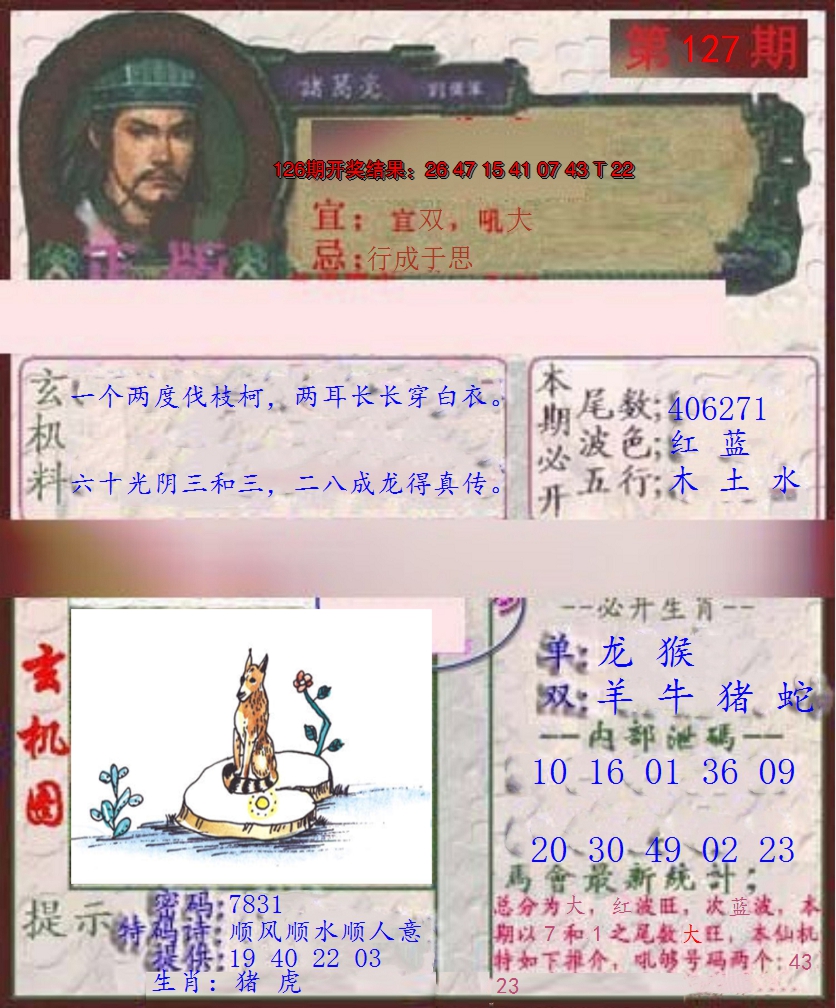 第127期
諸葛亮
126期开奖结果：26 47 15 41 07 43 T 22
宜：宜双，吼大
忌：行成于思
正版
玄机料
一个两度伐枝柯，两耳长长穿白衣。
六十光阴三和三，二八成龙得真传。
本期必开
尾数：406271
波色：红 蓝
五行：木 土 水
玄机图
--必开生肖--
单：龙 猴
双：羊 牛 猪 蛇
--内部泄碼--
10 16 01 36 09
20 30 49 02 23
馬會最新统计；
总分为大，红波旺，次蓝波，本
期以7和1之尾数大旺，本仙机
特如下推介，吼够号码两个：43
23
提示
密码：7831
特码诗：顺风顺水顺人意
提供：19 40 22 03
生肖：猪 虎